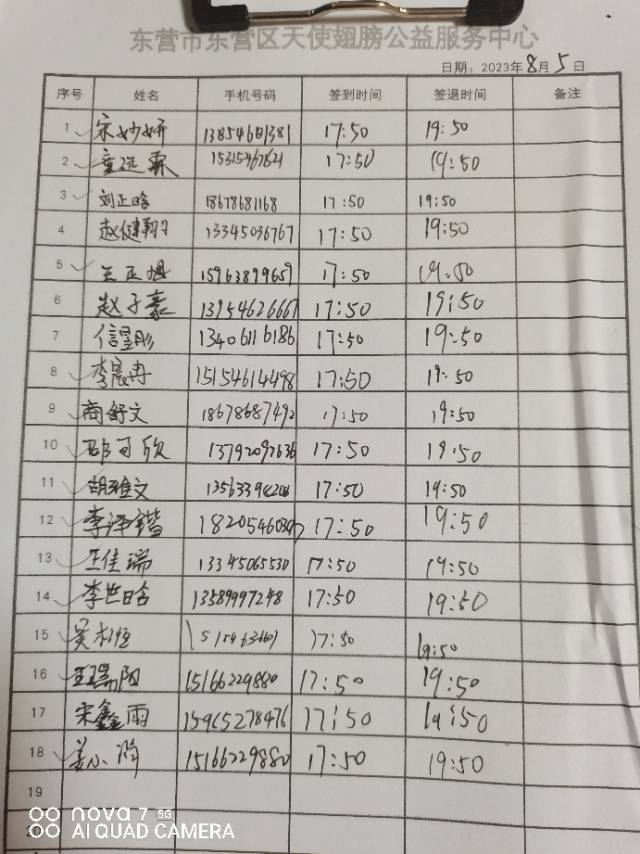 东营市东营区天使翅膀公益服务中心
日期：2023年8月5日
序号 姓名 手机号码 签到时间 签退时间 备注
1 宋妙妍 13854681381 17:50 19:50
2 童选霖 15315467621 17:50 19:50
3 刘正晗 18678681168 17:50 19:50
4 赵健翔 13345036767 17:50 19:50
5 王正旭 15963899659 17:50 19:50
6 赵子豪 13954626667 17:50 19:50
7 信昱彤 13406116186 17:50 19:50
8 李宸冉 15154614498 17:50 19:50
9 商舒文 18678687492 17:50 19:50
10 邵可欣 13792092636 17:50 19:50
11 胡雅文 17:50 19:50
12 李泽锴 17:50 19:50
13 王佳瑞 13345065530 17:50 19:50
14 李世晗 13589997248 17:50 19:50
15 17:50 19:50
16 王瑞阳 15166229880 17:50 19:50
17 宋鑫雨 15965278476 17:50 19:50
18 姜 15166229880 17:50 19:50
19
nova 7 5G
AI QUAD CAMERA